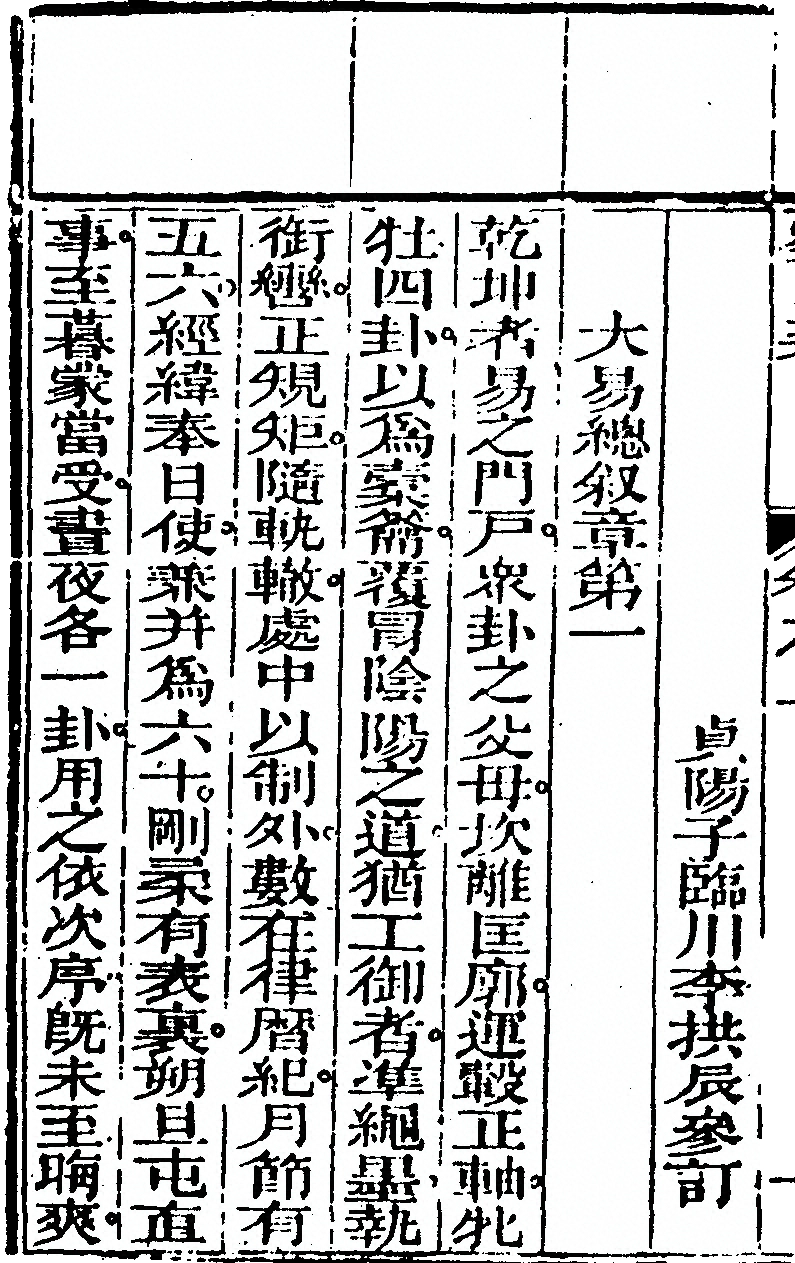 貞陽子臨川李拱辰參訂
大易總叙章第一
乾坤者易之門戸衆卦之父母坎離匡廓運轂正軸牝
牡四卦以爲槖籥覆冐陰陽之道猶工御者準繩墨執
銜轡正規矩隨軌轍處中以制外數在律曆紀月節有
五六經緯奉日使兼并爲六十剛柔有表裏朔旦屯直
事至暮蒙當受晝夜各一卦用之依次序旣未至晦爽